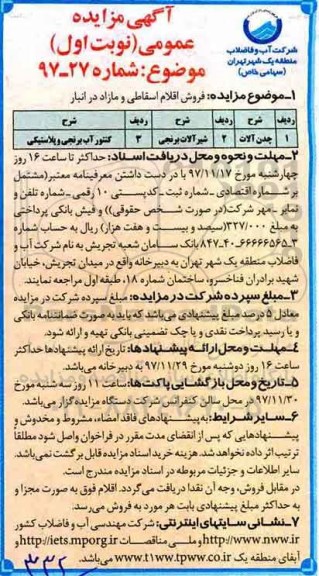 آگهی مزایده
عمومی (نوبت اول)
موضوع: شماره ۲۷-۹۷
شرکت آب و فاضلاب
منطقه یک شهر تهران
(سهامی خاص)
۱ـ موضوع مزایده: فروش اقلام اسقاطی و مازاد در انبار
ردیف شرح ردیف شرح ردیف شرح
۱ چدن آلات ۲ شیرآلات برنجی ۳ کنتور آب برنجی و پلاستیکی
۲ـ مهلت و نحوه و محل دریافت اسناد: حداکثر تا ساعت ۱۶ روز
چهارشنبه مورخ ۹۷/۱۱/۱۷ با در دست داشتن معرفینامه معتبر (مشتمل
بر: شماره اقتصادی ـ شماره ثبت ـ کدپستی ۱۰ رقمی ـ شماره تلفن و
نمابر ـ مهر شرکت (در صورت شخص حقوقی)) و فیش بانکی پرداختی
به مبلغ ۳۲۷/۰۰۰ (سیصد و بیست و هفت هزار) ریال به حساب شماره
۳ـ۶۶۶۶۶۵۶۵ـ۴۰ـ۸۴۷ بانک سامان شعبه تجریش به نام شرکت آب و
فاضلاب منطقه یک شهر تهران به دبیرخانه واقع در میدان تجریش، خیابان
شهید برادران فناخسرو، ساختمان شماره ۱۸، طبقه اول مراجعه نمایند.
۳ـ مبلغ سپرده شرکت در مزایده: مبلغ سپرده شرکت در مزایده
معادل ۵ درصد مبلغ پیشنهادی می‌باشد که باید به صورت ضمانتنامه بانکی
و یا رسید پرداخت نقدی و یا چک تضمینی بانکی تهیه و ارائه شود.
۴ـ مهلت و محل ارائه پیشنهادها: تاریخ ارائه پیشنهادها حداکثر
ساعت ۱۶ روز دوشنبه مورخ ۹۷/۱۱/۲۹ به دبیرخانه می‌باشد.
۵ـ تاریخ و محل بازگشایی پاکت‌ها: ساعت ۱۱ روز سه شنبه مورخ
۹۷/۱۱/۳۰ در محل سالن کنفرانس شرکت دستگاه مزایده گزار می‌باشد.
۶ـ سایر شرایط: به پیشنهادهای فاقد امضاء، مشروط و مخدوش و
پیشنهادهایی که پس از انقضای مدت مقرر در فراخوان واصل شود مطلقا
ترتیب اثر داده نخواهد شد. هزینه خرید اسناد مزایده قابل برگشت نمی‌باشد.
سایر اطلاعات و جزئیات مربوطه در اسناد مزایده مندرج است.
در مقابل فروش، وجه آن نقدا دریافت می‌گردد. اقلام فوق به صورت مجزا و
به حداکثر مبلغ پیشنهادی بابت هر مورد به فروش می‌رسد.
۷ـ نشانی سایتهای اینترنتی: شرکت مهندسی آب و فاضلاب کشور
http://www.nww.ir و ملی مناقصات http://iets.mporg.ir و
آبفای منطقه یک www.t1ww.tpww.co.ir می‌باشد.